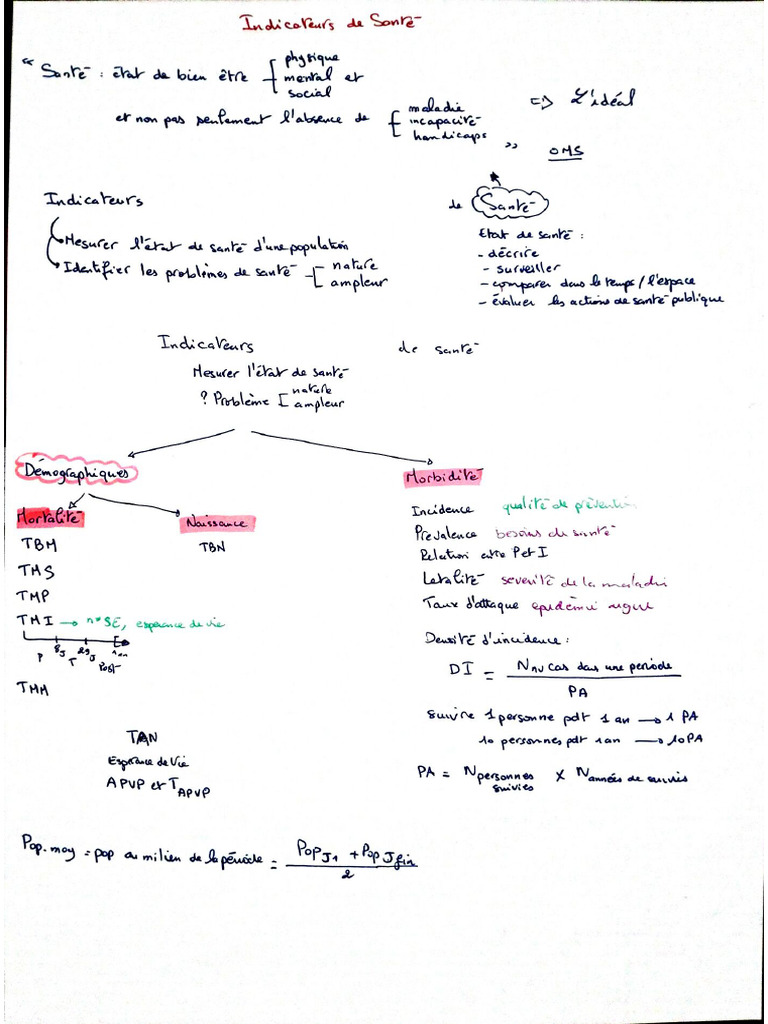 Indicateurs de Santé
"Santé : état de bien être [ physique
mental et
social
et non pas seulement l'absence de [ maladie
incapacité
handicaps "
=> L'idéal
OMS
Indicateurs
Mesurer l'état de santé d'une population
Identifier les problèmes de santé - [ nature
ampleur
de Santé
Etat de santé :
- décrire
- surveiller
- comparer dans le temps / l'espace
- évaluer les actions de santé publique
Indicateurs de santé
Mesurer l'état de santé
? Problème [ nature
ampleur
Démographiques
Mortalité
TBM
TMS
TMP
TMI → n* SE, espérance de vie
P 8J T 29J Post 1 an
TMM
Naissance
TBN
TAN
Espérance de Vie
APVP et T APVP
Morbidité
Incidence qualité de prévention
Prévalence besoins de santé
Relation entre P et I
Létalité séverité de la maladie
Taux d'attaque epidémie
Densité d'incidence :
DI = N nv cas dans une periode / PA
suivre 1 personne pdt 1 an → 1 PA
10 personnes pdt 1 an → 10 PA
PA = N personnes suivies x N années de suivis
Pop. moy = pop au milieu de la période = Pop J1 + Pop J fin / 2